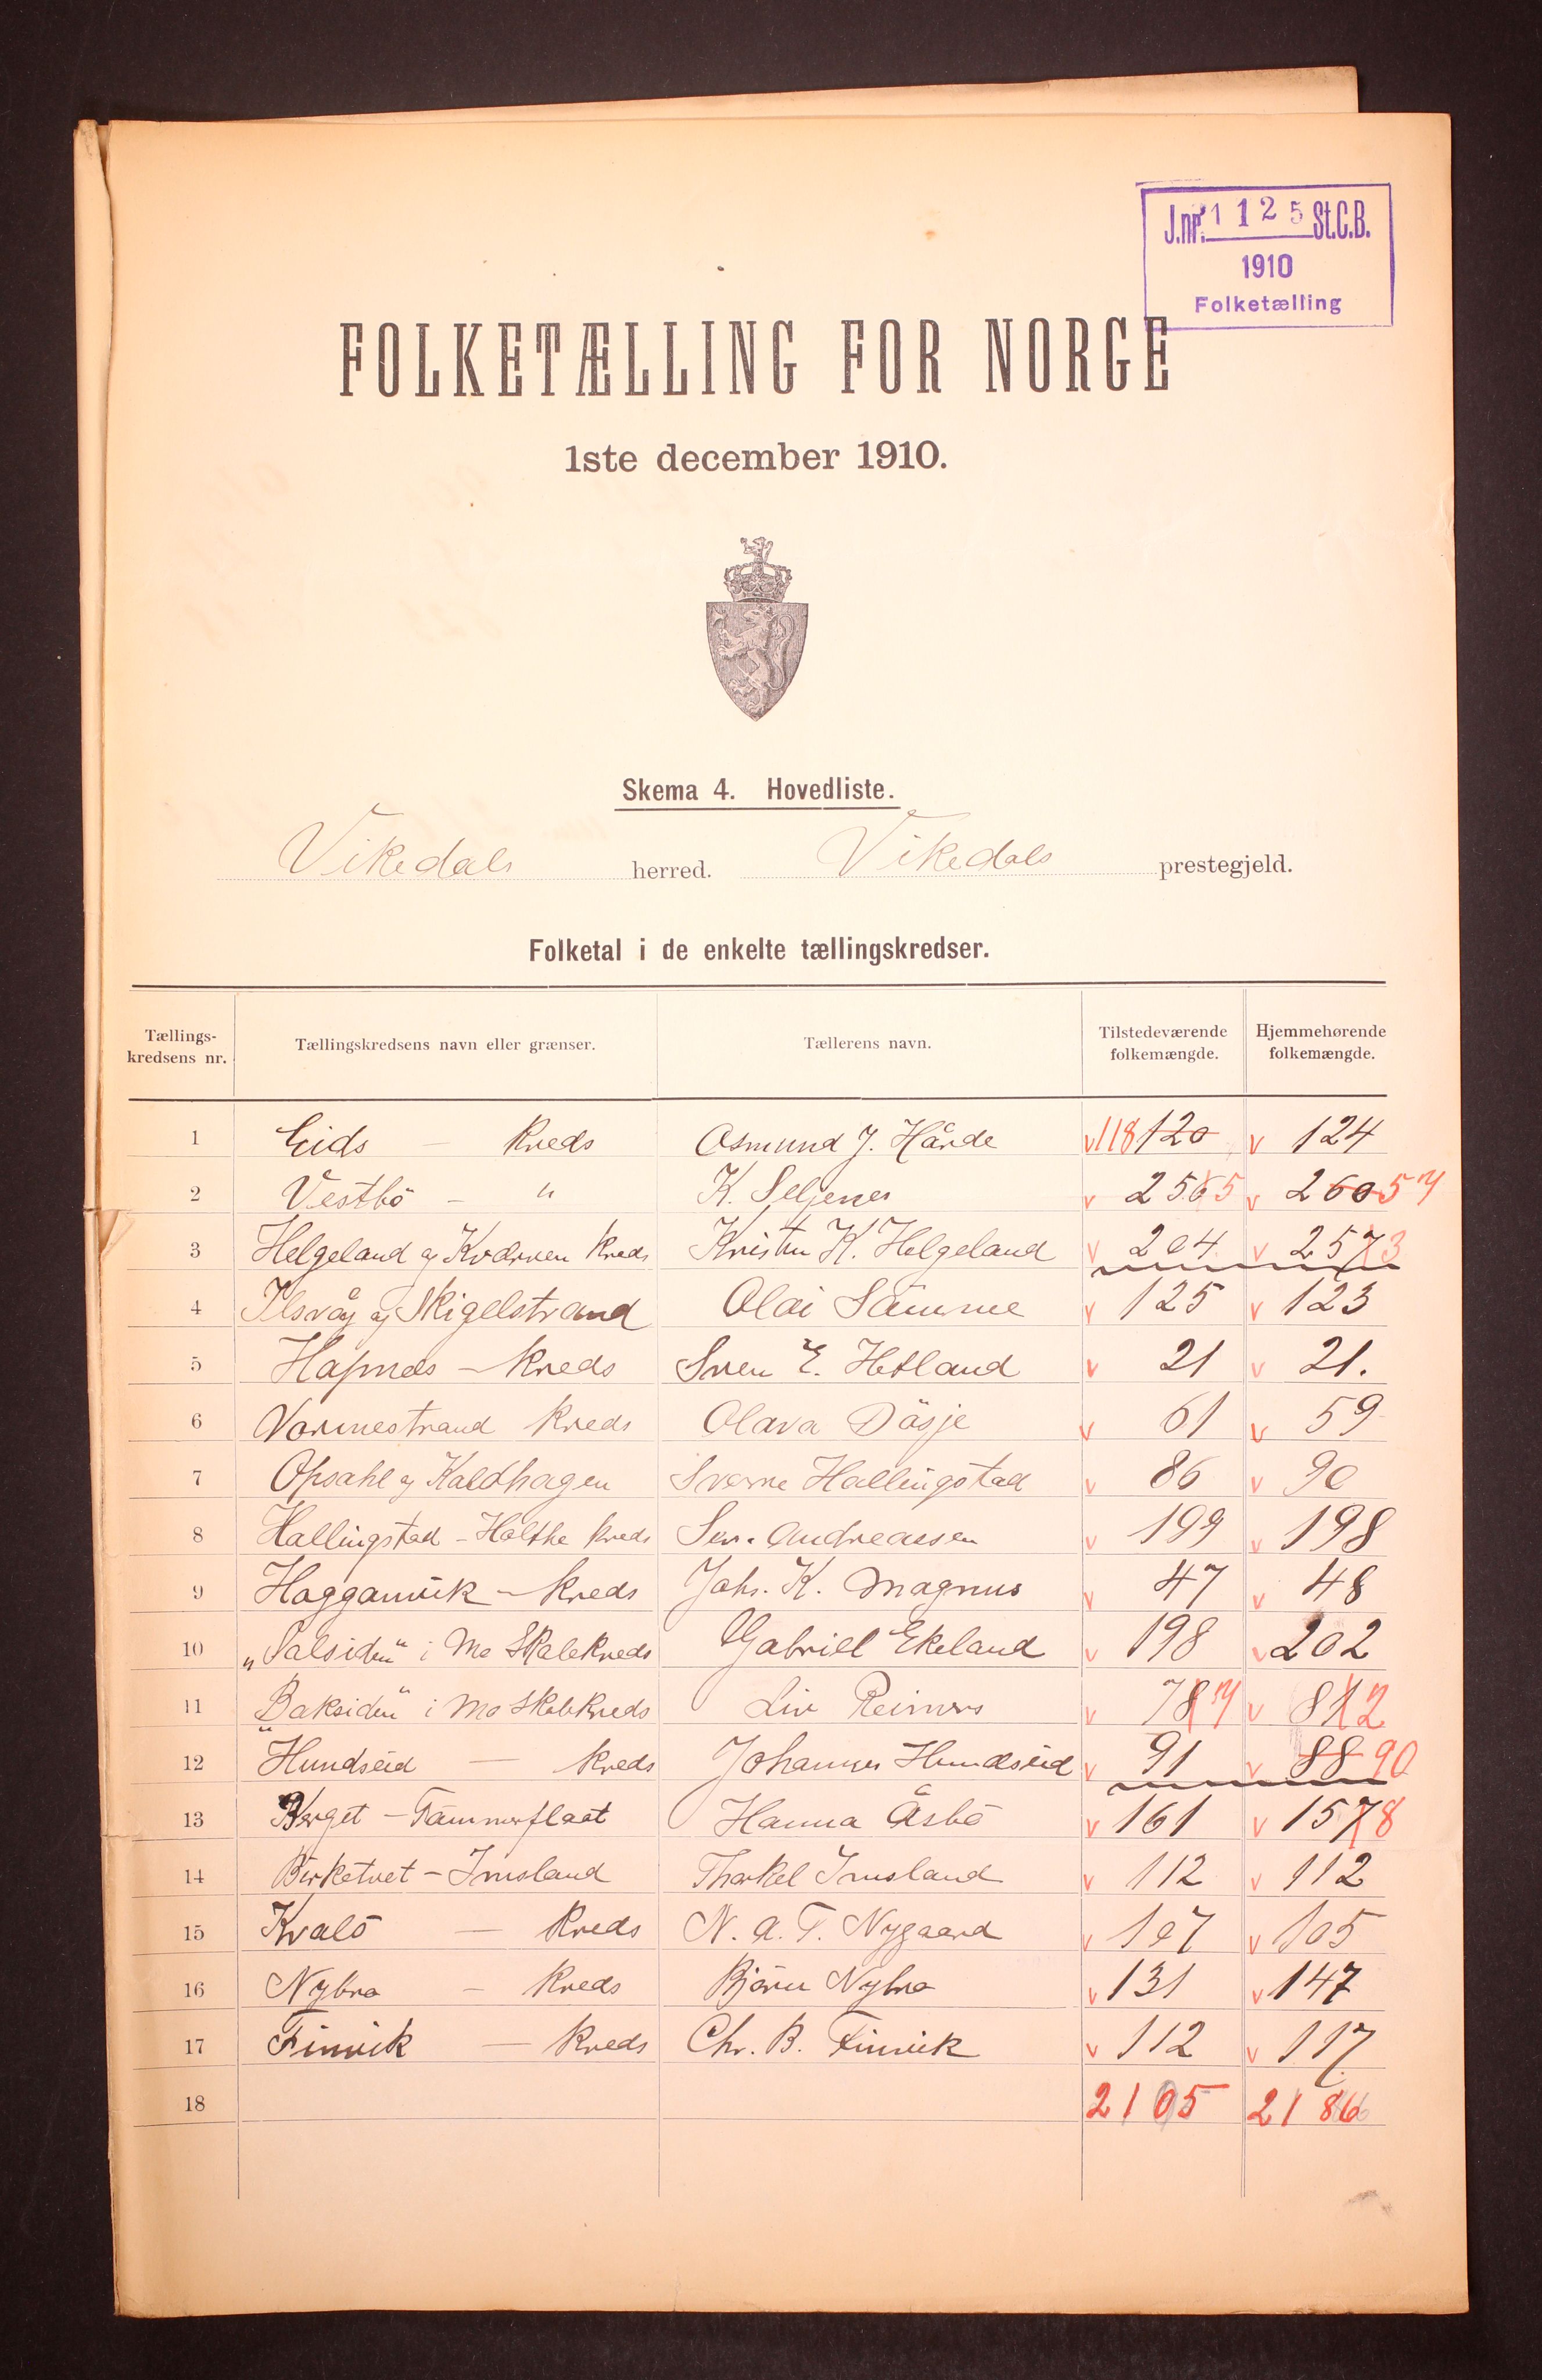 J.nr. 1125 St.C.B.
1910
Folketælling
FOLKETÆLLING FOR NORGE
1ste december 1910.
Skema 4. Hovedliste.
Vikedals herred. Vikedals prestegjeld.
Folketal i de enkelte tællingskredser.
Tællings-kredsens nr. Tællingskredsens navn eller grænser. Tællerens navn. Tilstedeværende folkemængde. Hjemmehørende folkemængde.
1 Eids — Kreds Osmund J. Hårde v 118 120 v 124
2 Vestbö — " K. Seljenes v 256 5 v 260 57
3 Helgeland og Kvdrnen Kreds Kristen K. Helgeland v 204 v 257 3
4 Ilsvåg og Skigelstrand Olai Sämme v 125 v 123
5 Hapnæs — Kreds Sven E. Hetland v 21 v 21.
6 Vormestrand Kreds Olava Däsje v 61 v 59
7 Opsahl og Kaldhagen Sverre Hallingstad v 86 v 90
8 Hallingstad - Holthe Kreds Sev. Andreassen v 199 v 198
9 Hogganvik — Kreds Johs. K. Magnus v 47 v 48
10 „Salsiden“ i Mo Skolekreds Gabriel Ekeland v 198 v 202
11 „Baksiden“ i Mo Skolekreds Liv Reimers v 78 7 v 81 2
12 Hundseid — Kreds Johannes Hundseid v 91 v 88 90
13 Berget - Tämmerflaat Hanna Åsbö v 161 v 157 8
14 Birketvet - Imsland Thorkel Imsland v 112 v 112
15 Kvalö — Kreds N. A. T. Nygaard v 107 v 105
16 Nybro — Kreds Björn Nybro v 131 v 147
17 Finvik — Kreds Chr. B. Finvik v 112 v 117
18 2105 2186